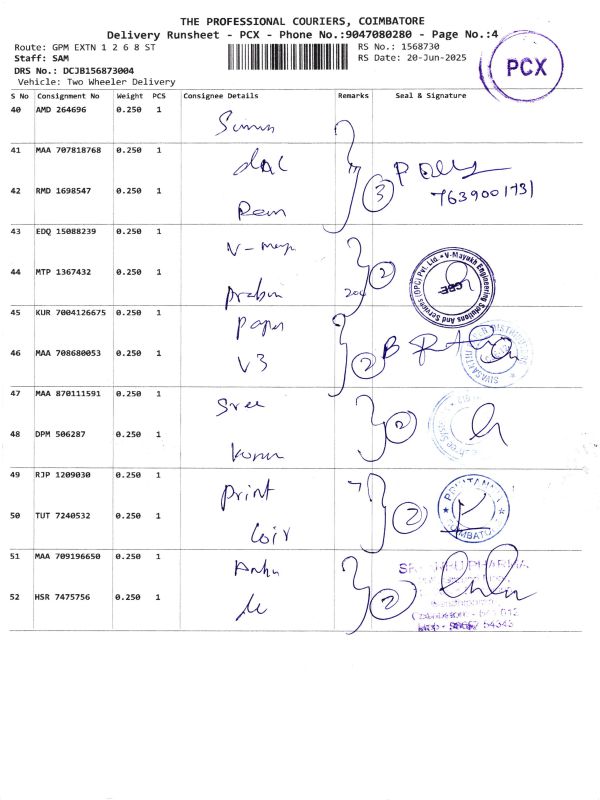 THE PROFESSIONAL COURIERS, COIMBATORE
Delivery Runsheet - PCX - Phone No.:9047080280 - Page No.:4
Route: GPM EXTN 1 2 6 8 ST
RS No.: 1568730
Staff: SAM
RS Date: 20-Jun-2025
DRS No.: DCJB156873004
Vehicle: Two Wheeler Delivery
PCX
S No Consignment No Weight PCS Consignee Details Remarks Seal & Signature
40 AMD 264696 0.250 1
41 MAA 707818768 0.250 1
3
7639001731
42 RMD 1698547 0.250 1 Ram
43 EDQ 15088239 0.250 1
2
V-Mayukh Engineering Solutions And Services (OPC) Pvt. Ltd.
CBE
44 MTP 1367432 0.250 1 Prabin
45 KUR 7004126675 0.250 1 Paper
46 MAA 708680053 0.250 1 V3 2
47 MAA 870111591 0.250 1 Sree
2
48 DPM 506287 0.250 1
49 RJP 1209030 0.250 1 Print
50 TUT 7240532 0.250 1 Coir 2
COIMBATORE
51 MAA 709196650 0.250 1 Anhu
PHARMA
52 HSR 7475756 0.250 1 2